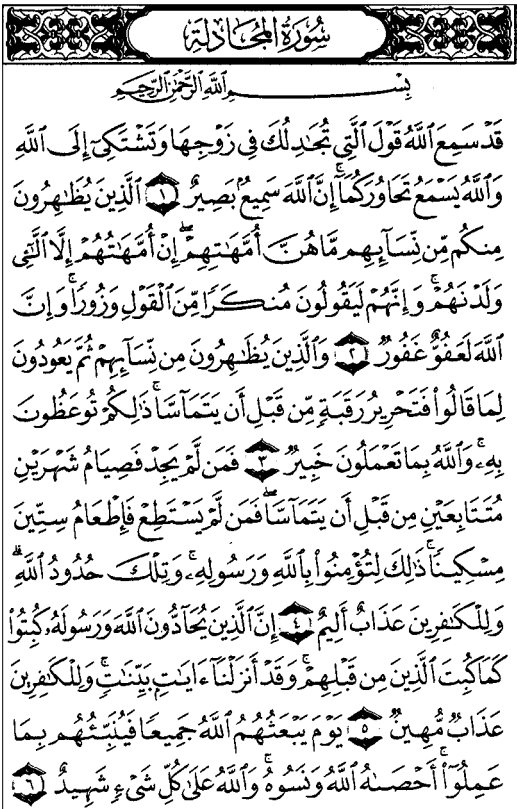 سُورَةُ المُجَادلة
بِسْمِ اللَّهِ الرَّحْمَٰنِ الرَّحِيمِ
قَدْ سَمِعَ اللَّهُ قَوْلَ الَّتِي تُجَادِلُكَ فِي زَوْجِهَا وَتَشْتَكِي إِلَى اللَّهِ
وَاللَّهُ يَسْمَعُ تَحَاوُرَكُمَا إِنَّ اللَّهَ سَمِيعٌ بَصِيرٌ ١ الَّذِينَ يُظَاهِرُونَ
مِنكُم مِّن نِّسَائِهِم مَّا هُنَّ أُمَّهَاتِهِمْ ۖ إِنْ أُمَّهَاتُهُمْ إِلَّا اللَّائِي
وَلَدْنَهُمْ ۚ وَإِنَّهُمْ لَيَقُولُونَ مُنكَرًا مِّنَ الْقَوْلِ وَزُورًا ۚ وَإِنَّ
اللَّهَ لَعَفُوٌّ غَفُورٌ ٢ وَالَّذِينَ يُظَاهِرُونَ مِن نِّسَائِهِمْ ثُمَّ يَعُودُونَ
لِمَا قَالُوا فَتَحْرِيرُ رَقَبَةٍ مِّن قَبْلِ أَن يَتَمَاسَّا ۚ ذَٰلِكُمْ تُوعَظُونَ
بِهِ ۚ وَاللَّهُ بِمَا تَعْمَلُونَ خَبِيرٌ ٣ فَمَن لَّمْ يَجِدْ فَصِيَامُ شَهْرَيْنِ
مُتَتَابِعَيْنِ مِن قَبْلِ أَن يَتَمَاسَّا ۖ فَمَن لَّمْ يَسْتَطِعْ فَإِطْعَامُ سِتِّينَ
مِسْكِينًا ۚ ذَٰلِكَ لِتُؤْمِنُوا بِاللَّهِ وَرَسُولِهِ ۚ وَتِلْكَ حُدُودُ اللَّهِ ۗ
وَلِلْكَافِرِينَ عَذَابٌ أَلِيمٌ ٤ إِنَّ الَّذِينَ يُحَادُّونَ اللَّهَ وَرَسُولَهُ كُبِتُوا
كَمَا كُبِتَ الَّذِينَ مِن قَبْلِهِمْ ۚ وَقَدْ أَنزَلْنَا آيَاتٍ بَيِّنَاتٍ ۚ وَلِلْكَافِرِينَ
عَذَابٌ مُّهِينٌ ٥ يَوْمَ يَبْعَثُهُمُ اللَّهُ جَمِيعًا فَيُنَبِّئُهُم بِمَا
عَمِلُوا ۚ أَحْصَاهُ اللَّهُ وَنَسُوهُ ۚ وَاللَّهُ عَلَىٰ كُلِّ شَيْءٍ شَهِيدٌ ٦